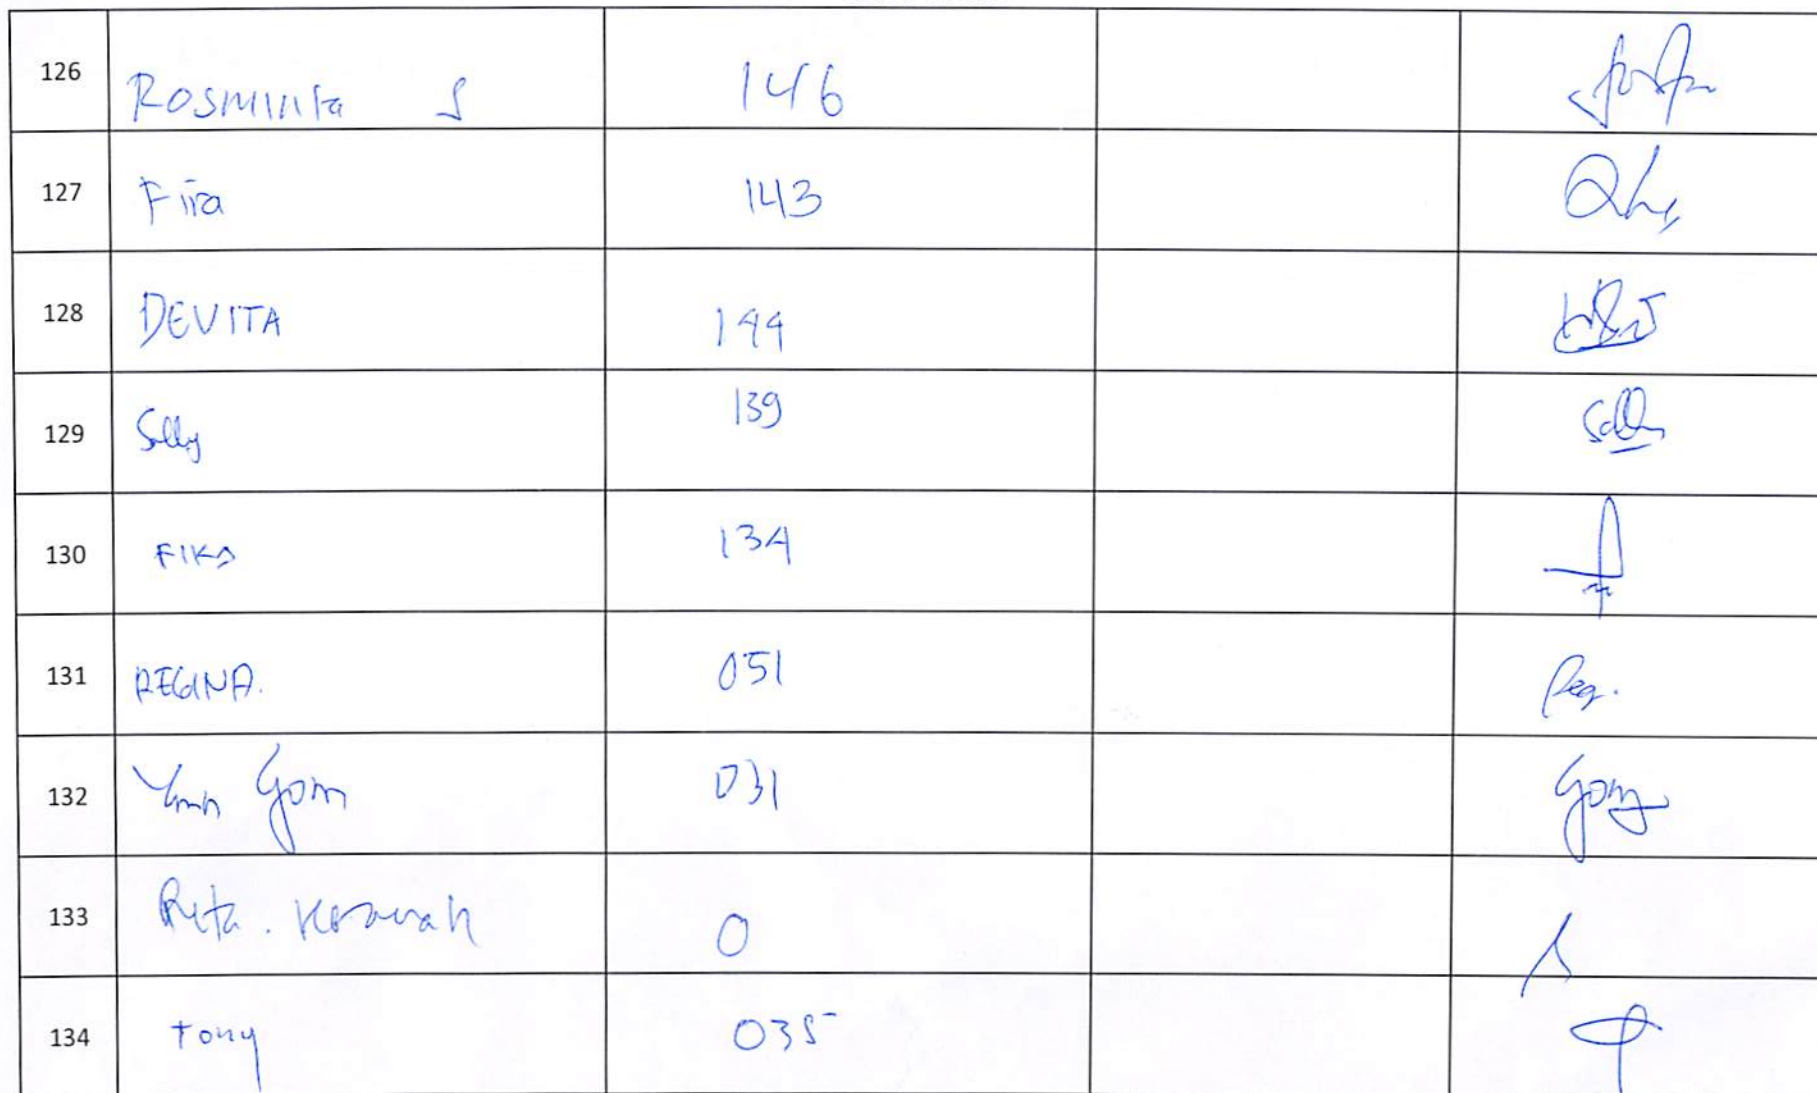 126 Rosminta S 146
127 Fira 143
128 DEVITA 144
129 Selly 139
130 FIKA 134
131 REGINA. 051
132 Gom 031 Gom
133 Rita. 0
134 Tony 035